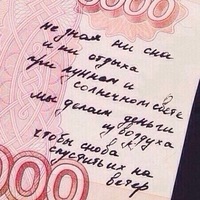 000
не зная ни сна
и ни отдыха
при лунном и
солнечном свете
мы делаем деньги
из воздуха
чтобы снова
спустить их на
ветер
000